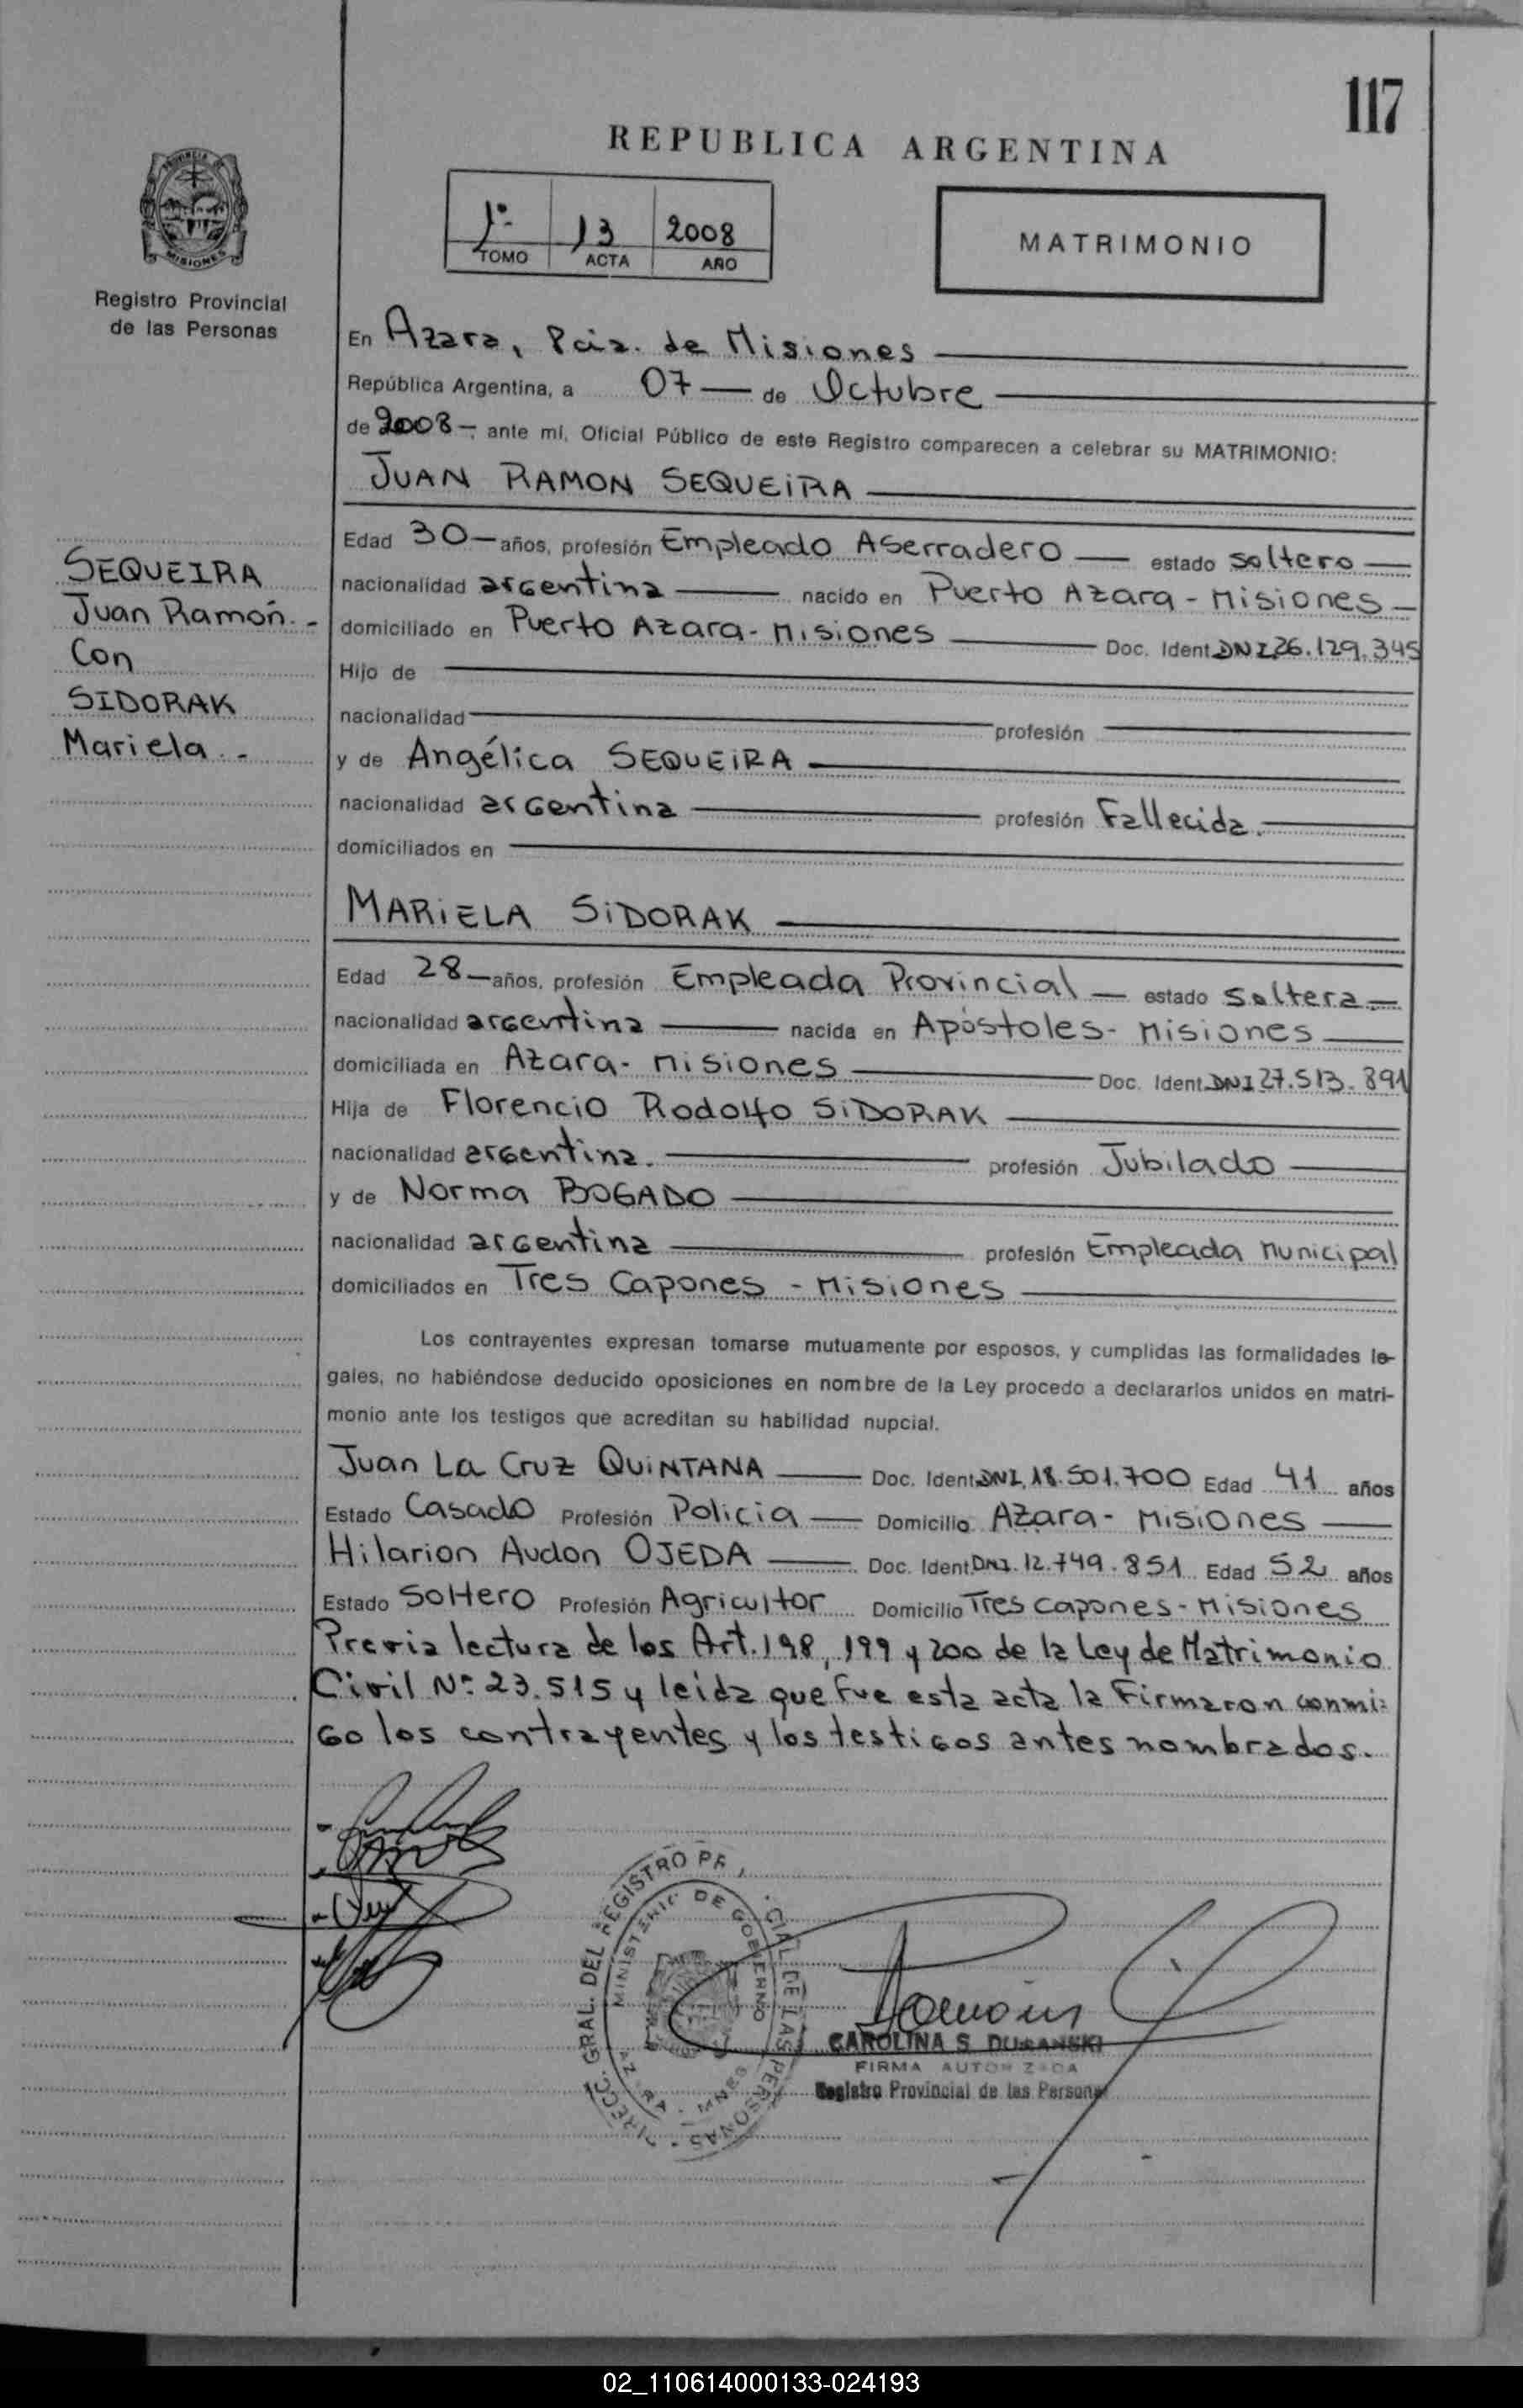 117
REPUBLICA ARGENTINA
1º 13 2008
TOMO ACTA AÑO
MATRIMONIO
PROVINCIA DE
MISIONES
Registro Provincial
de las Personas
En Azara, Pcia. de Misiones
República Argentina, a 07 de Octubre
de 2008 ante mí, Oficial Público de este Registro comparecen a celebrar su MATRIMONIO:
JUAN RAMON SEQUEIRA
Edad 30 años, profesión Empleado Aserradero estado soltero
nacionalidad argentina nacido en Puerto Azara - Misiones
domiciliado en Puerto Azara - Misiones Doc. Ident. DNI 26.129.345
Hijo de
nacionalidad profesión
y de Angélica SEQUEIRA
nacionalidad argentina profesión Fallecida.
domiciliados en
SEQUEIRA
Juan Ramón.-
Con
SIDORAK
Mariela.-
MARIELA SIDORAK
Edad 28 años, profesión Empleada Provincial estado soltera
nacionalidad argentina nacida en Apóstoles - Misiones
domiciliada en Azara - Misiones Doc. Ident. DNI 27.513.891
Hija de Florencio Rodolfo SIDORAK
nacionalidad argentina. profesión Jubilado
y de Norma BOGADO
nacionalidad argentina profesión Empleada Municipal
domiciliados en Tres Capones - Misiones
Los contrayentes expresan tomarse mutuamente por esposos, y cumplidas las formalidades le-
gales, no habiéndose deducido oposiciones en nombre de la Ley procedo a declararlos unidos en matri-
monio ante los testigos que acreditan su habilidad nupcial.
Juan La Cruz QUINTANA Doc. Ident. DNI. 18.501.700 Edad 41 años
Estado Casado Profesión Policia Domicilio Azara - Misiones
Hilarion Audon OJEDA Doc. Ident. DNI. 12.749.851 Edad 52 años
Estado Soltero Profesión Agricultor Domicilio Tres Capones - Misiones
Previa lectura de los Art. 198, 199 y 200 de la Ley de Matrimonio
Civil Nº 23.515 y leida que fue esta acta la Firmaron conmi-
go los contrayentes y los testigos antes nombrados.
DIRECC. GRAL. DEL REGISTRO PROVINCIAL DE LAS PERSONAS
MINISTERIO DE GOBIERNO
AZARA - MNES
CAROLINA S. DURANSKI
FIRMA AUTORIZADA
Registro Provincial de las Personas
02_110614000133-024193